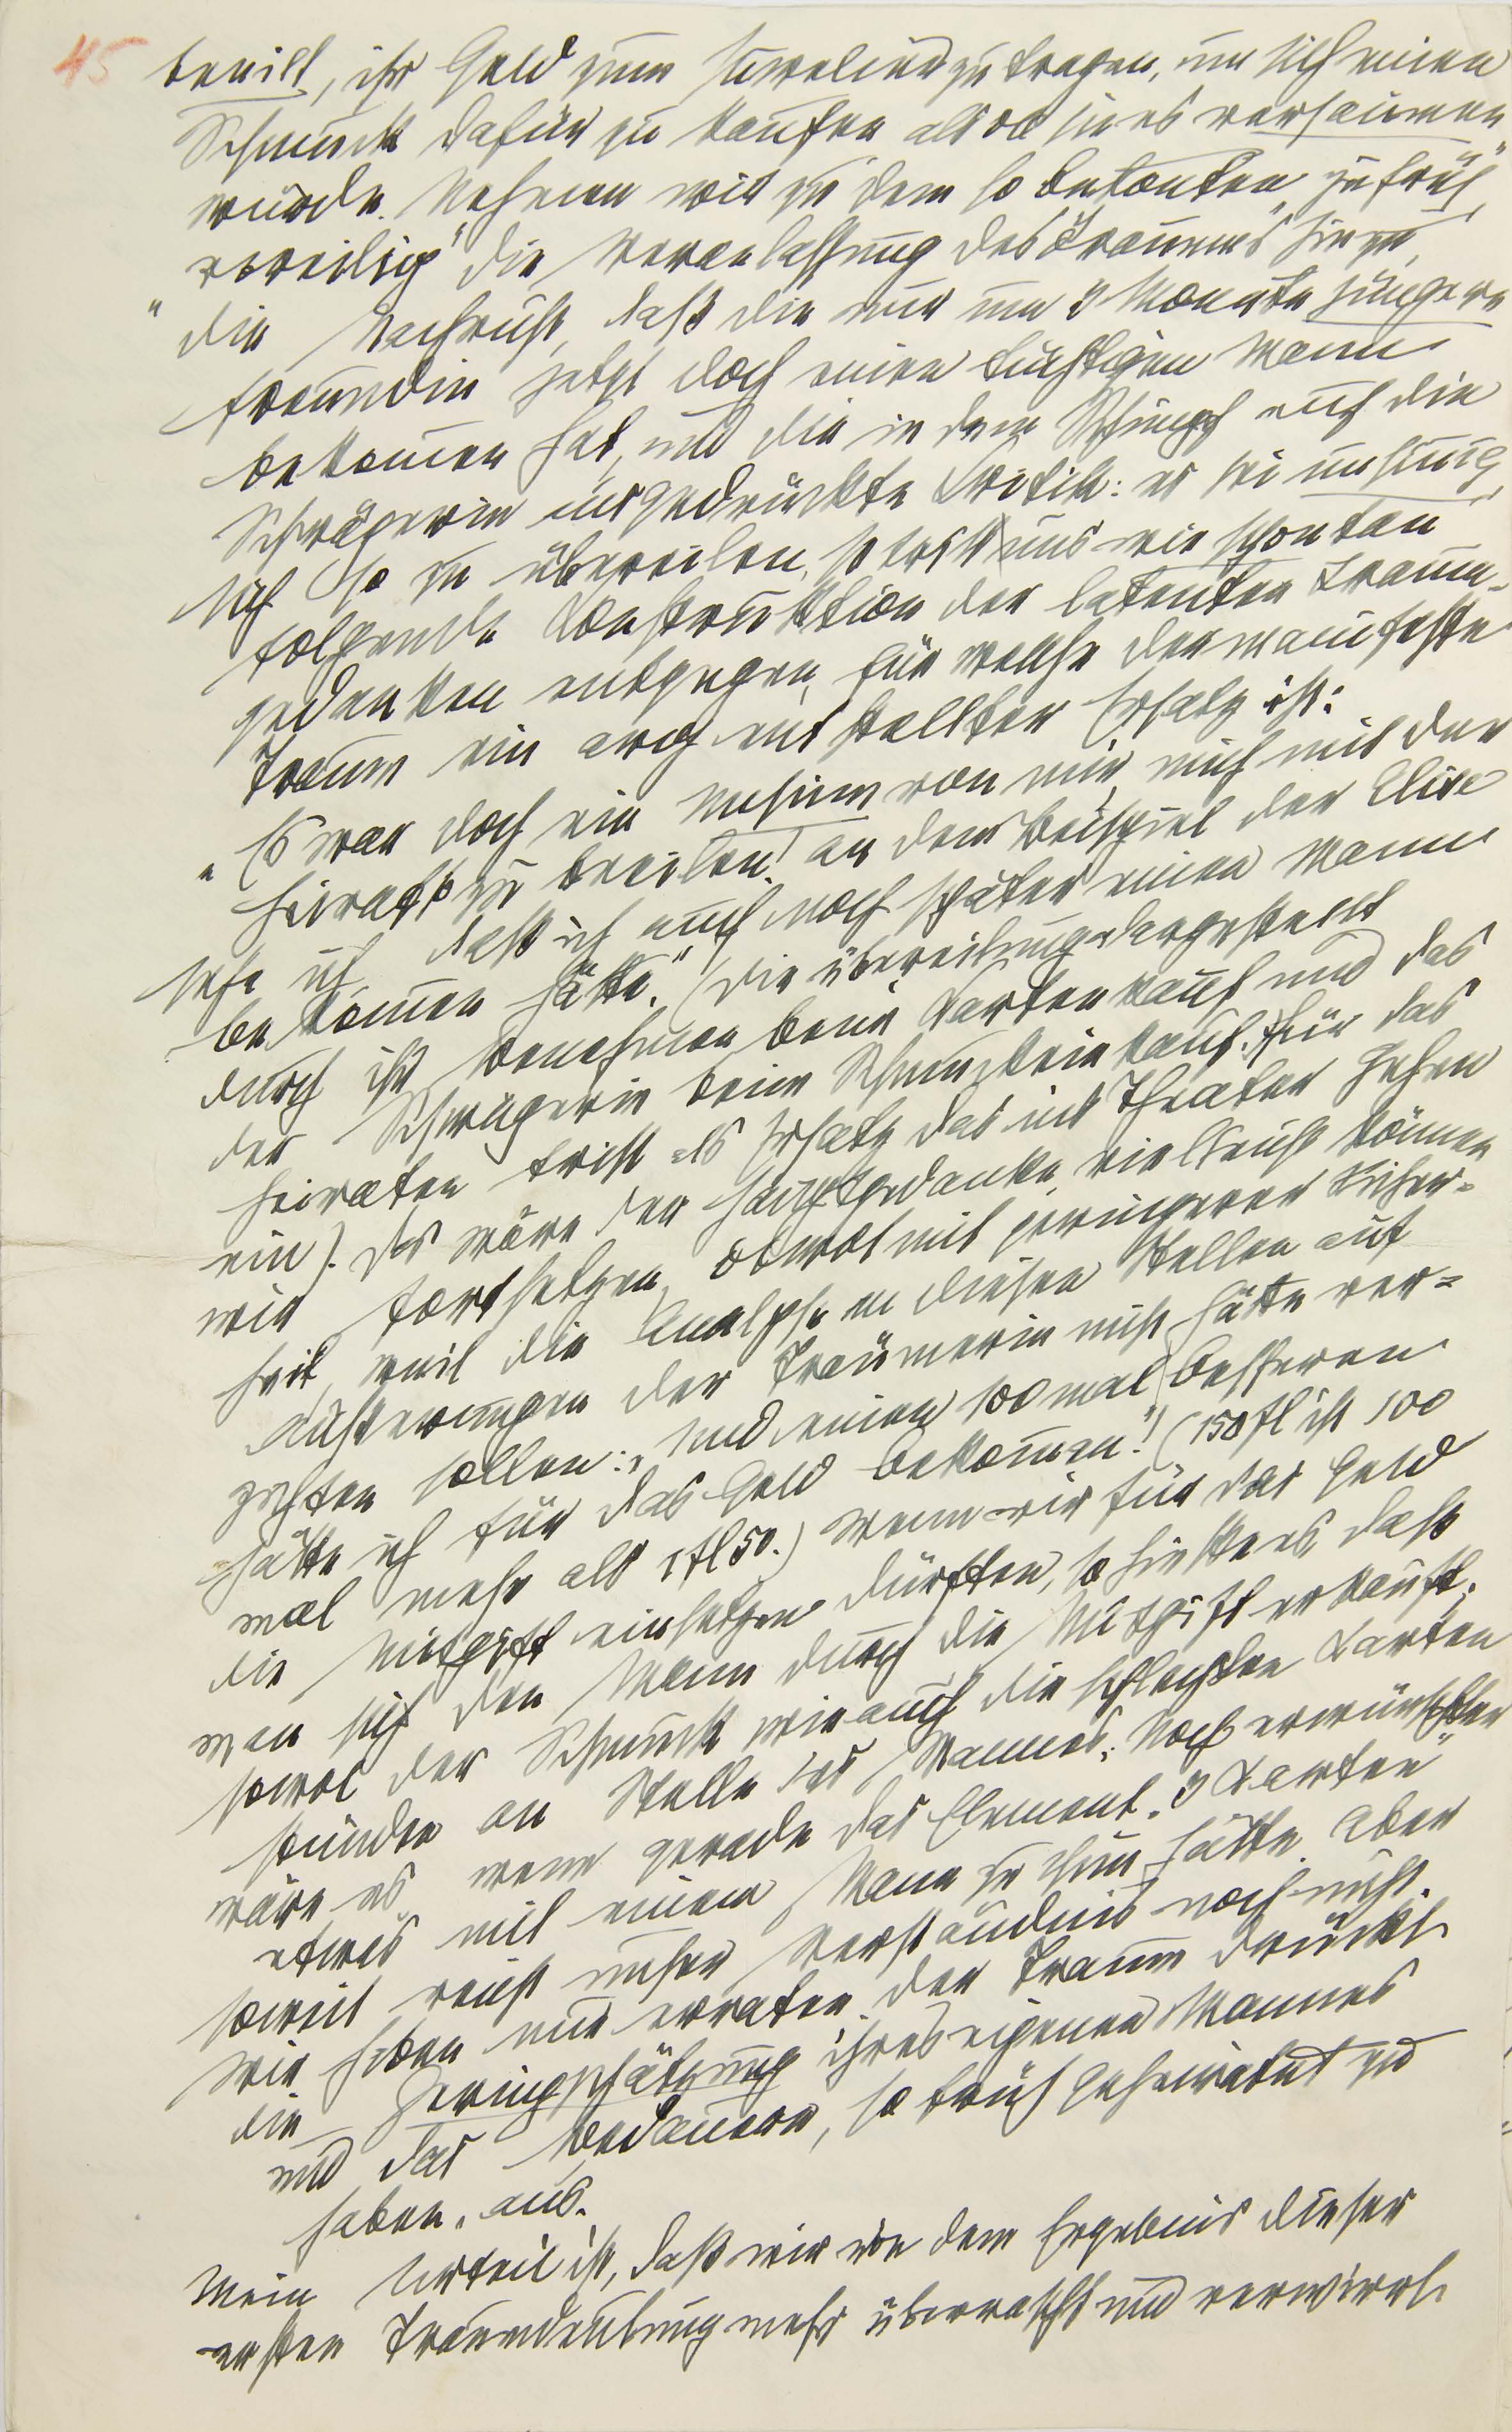 45
beeilt, ihr Geld zum Juwelier zu tragen, um sich einen
Schmuck dafür zu kaufen als ob sie es versäumen
würde. Nehmen wir zu dem so betonten „zu früh,
voreilig" die Veranlassung des Traumes hinzu,
die Nachricht, daß die nur um 3 Monate jüngere
Freundin jetzt doch einen tüchtigen Mann
bekom̄en hat, und die in dem Schimpf auf die
Schwägerin ausgedrückte Kritik: es sei unsinnig,
sich so zu übereilen, so tritt uns wie spontan
folgende Konstruktion der latenten Traum-
gedanken entgegen, für welche der manifeste
Traum ein arg entstellter Ersatz ist:
„Es war doch ein Unsinn von mir, mich mit der
Heirat so zu beeilen! An dem Beispiel der Elise
sehe ich, daß ich auch noch später einen Mann
bekom̄en hätte." (Die Übereilung dargestellt
durch ihr Benehmen beim Kartenkauf und das
der Schwägerin beim Schmuckeinkauf. Für das
Heiraten tritt als Ersatz das ins Theater gehen
ein). Das wäre der Hauptgedanke, vielleicht können
wir fortsetzen, obwol mit geringerer Sicher-
heit, weil die Analyse an diesen Stellen auf
Äußerungen der Träumerin nicht hätte ver-
zichten sollen: „Und einen 100 mal besseren
hätte ich für das Geld bekom̄en!" (150 fl ist 100
mal mehr als 1 fl 50.) Wenn wir für das Geld
die Mitgift einsetzen dürften, so hieße es, daß
man sich den Mann durch die Mitgift erkauft;
sowol der Schmuck wie auch die schlechten Karten
stünden an Stelle des Mannes. Noch erwünschter
wäre es, wenn gerade das Element „3 Karten"
etwas mit einem Mann zu thun hätte. Aber
soweit reicht unser Verständnis noch nicht.
Wir haben nur erraten, der Traum drückt
die Geringschätzung ihres eigenen Mannes
und das Bedauern, so früh geheiratet zu
haben, aus.
Mein Urteil ist, daß wir von dem Ergebnis dieser
ersten Traumdeutung mehr überrascht und verwirrt